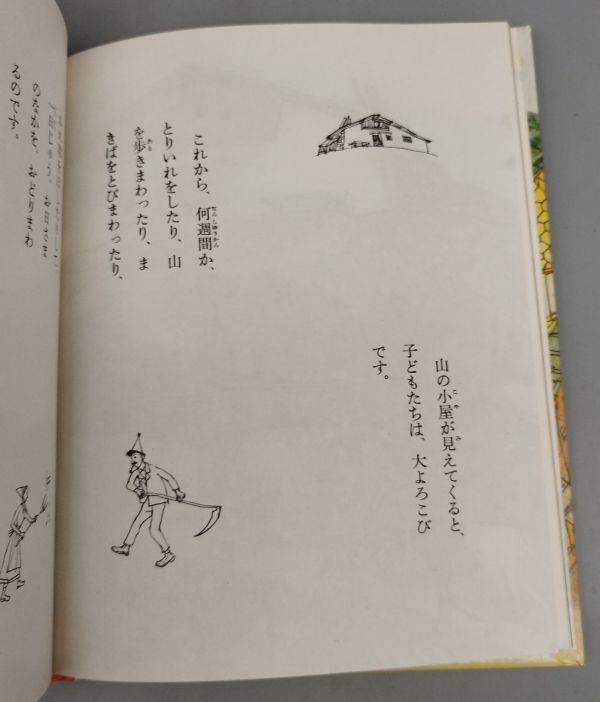 山の小屋が見えてくると、
子どもたちは、大よろこび
です。
これから、何週間か、
とりいれをしたり、山
を歩きまわったり、ま
きばをとびまわったり、
のなかを、おどりまわ
るのです。